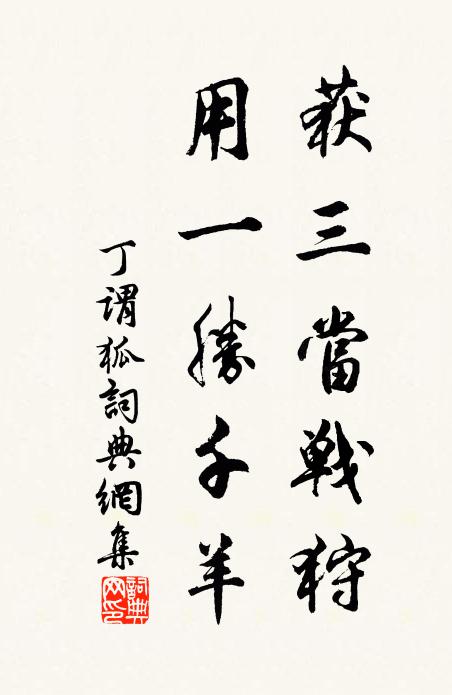 获三當戦狩
用一勝千羊
丁谓狐詞典網集
詞典网印